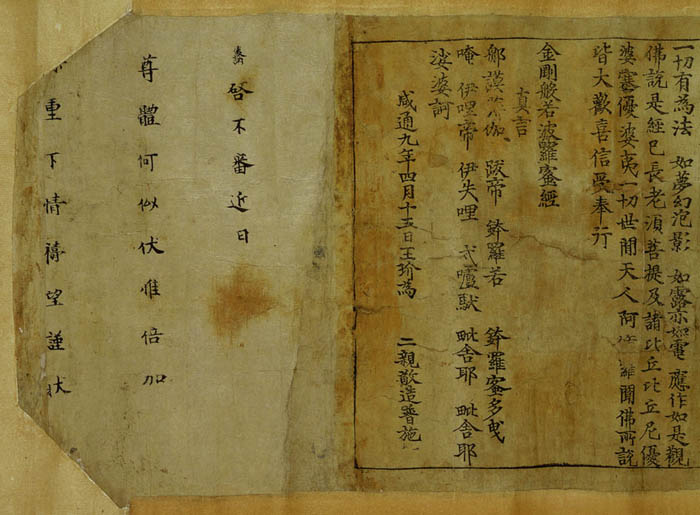 一切有為法 如夢幻泡影 如露亦如電 應作如是觀
佛說是經已長老須菩提及諸比丘比丘尼優
婆塞優婆夷一切世間天人阿 羅聞佛所說
皆大歡喜信受奉行
金剛般若波羅蜜經
真言
那謨 伽 跋帝 鉢羅若 鉢羅蜜多曳
唵 伊哩帝 伊失哩 戍嚧馱 毗舍耶 毗舍耶
娑婆訶
咸通九年四月十五日王玠為 二親敬造普施
啓不審近日
尊體何似伏惟倍加
重下情禱望謹狀